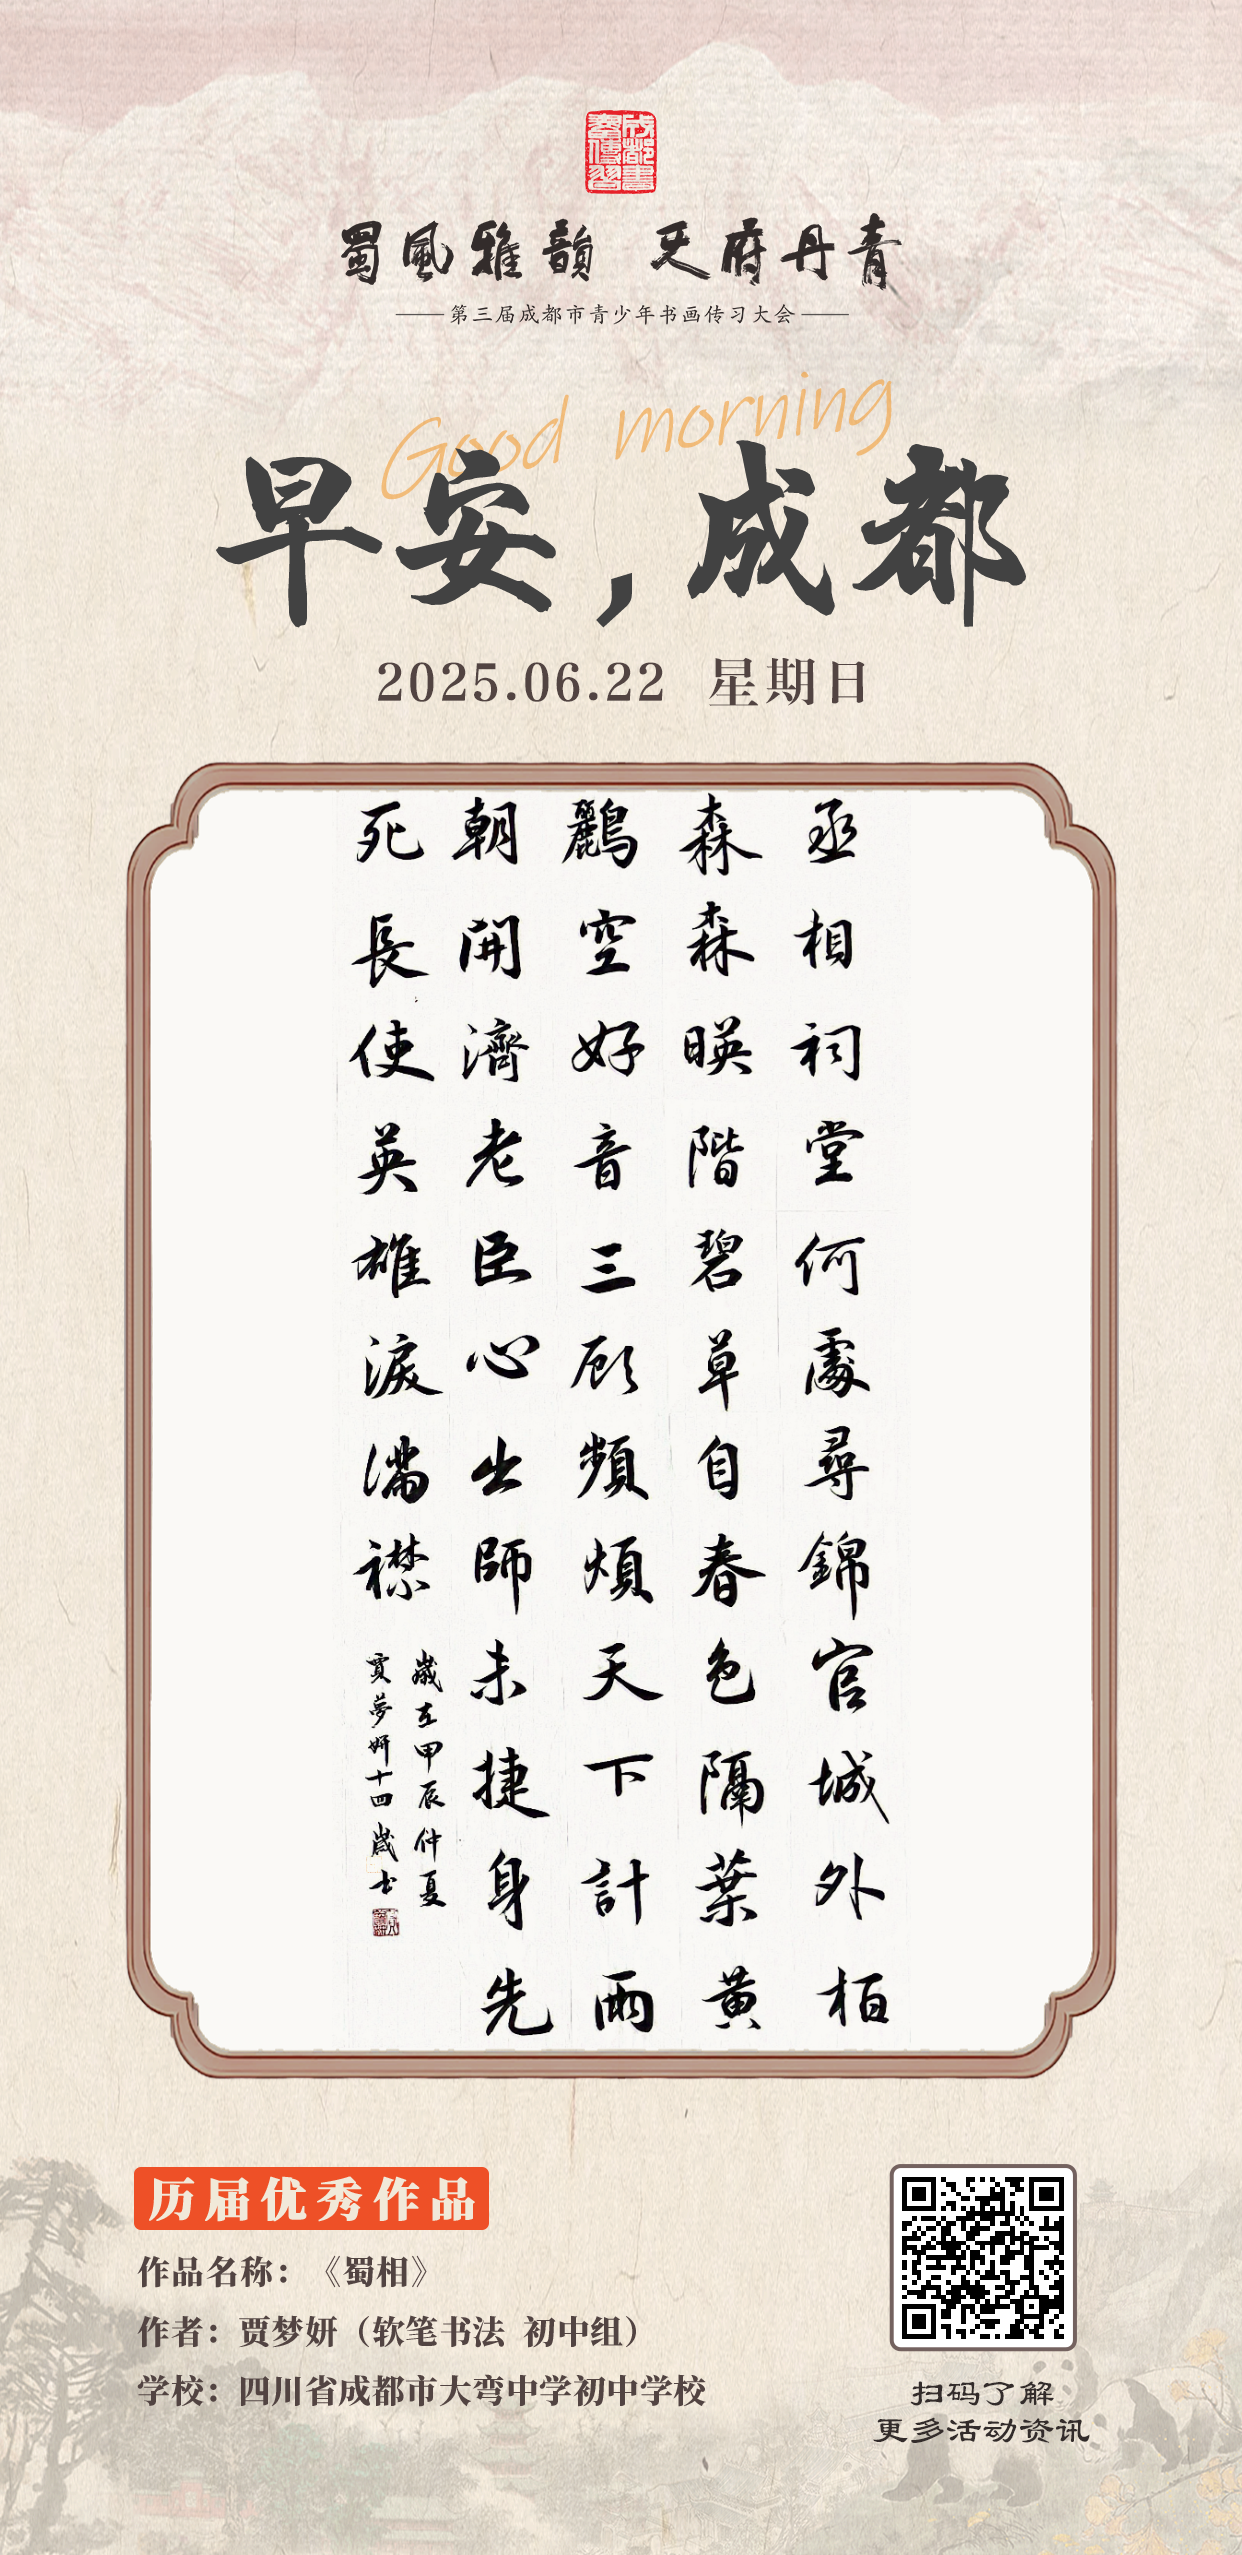 成都書
畫傳習
蜀風雅韻 天府丹青
第三届成都市青少年书画传习大会
Good morning
早安，成都
2025.06.22 星期日
丞相祠堂何處尋錦官城外柏
森森暎階碧草自春色隔葉黄
鸝空好音三顾頻煩天下計兩
朝開濟老臣心出師未捷身先
死長使英雄淚滿襟
歲在甲辰仲夏
賈夢妍十四歲书
历届优秀作品
作品名称：《蜀相》
作者：贾梦妍（软笔书法 初中组）
学校：四川省成都市大弯中学初中学校
扫码了解
更多活动资讯